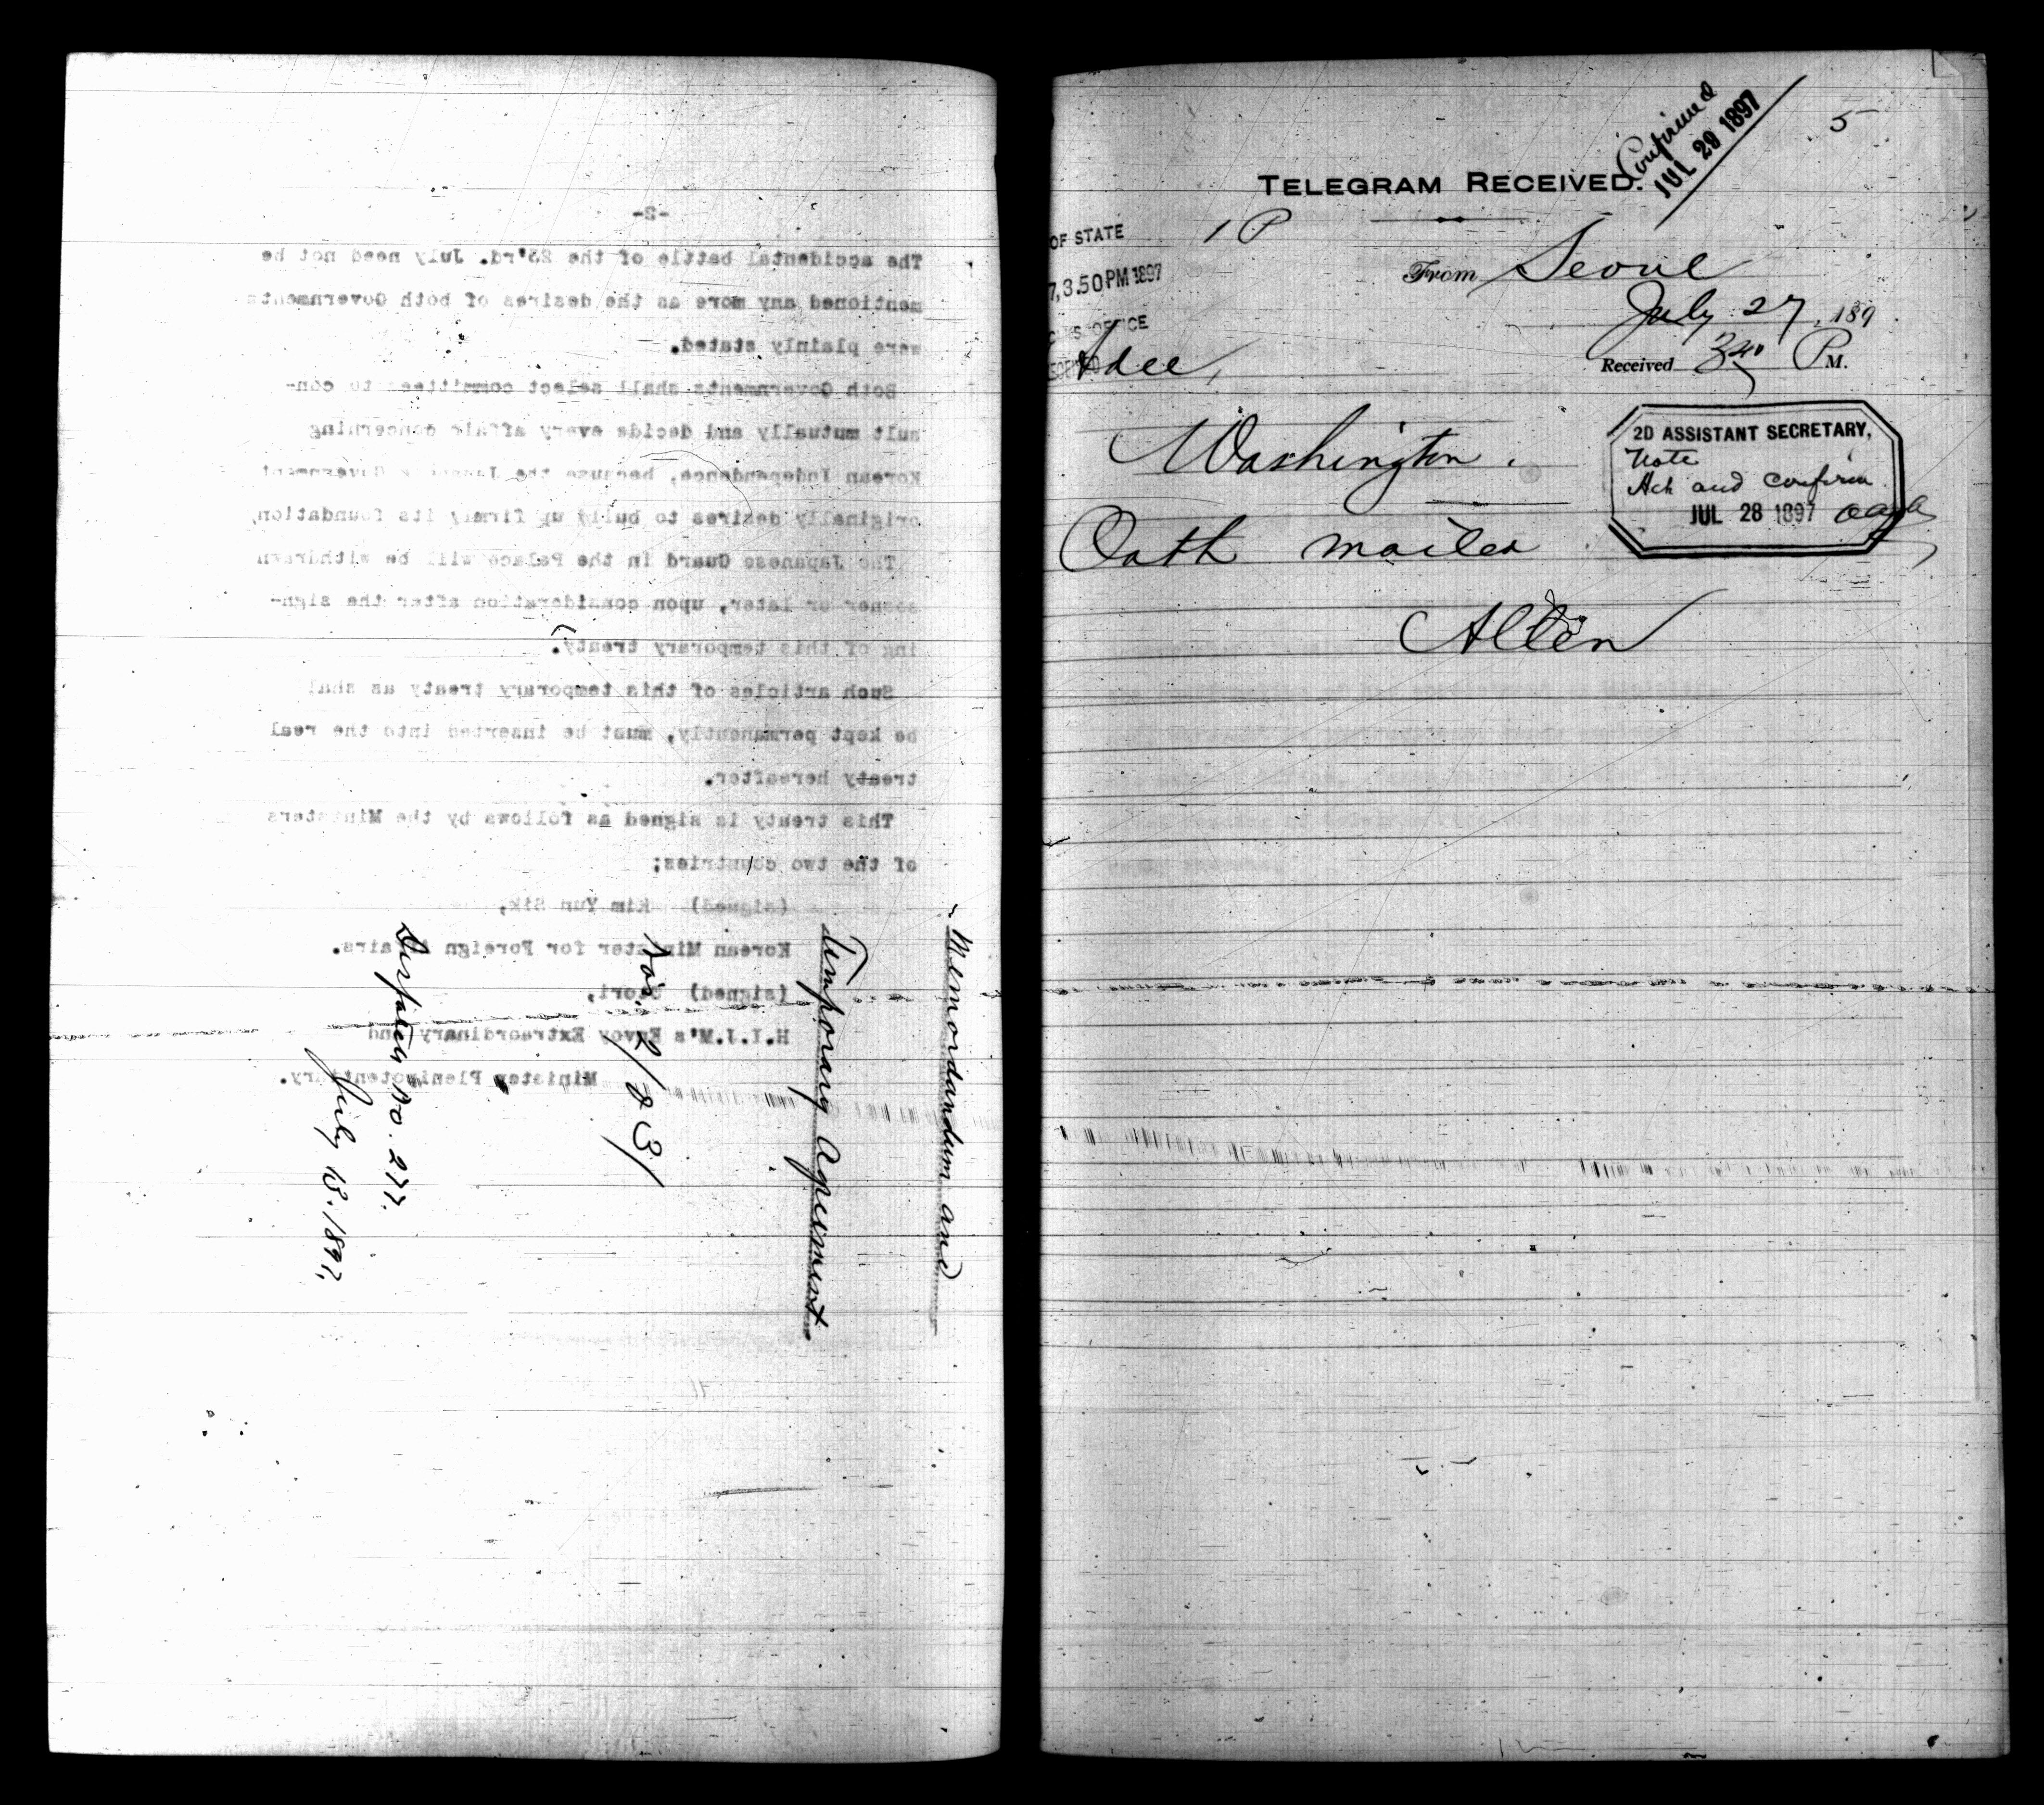 -2-
The accidental battle of the 23'rd. July need not be
mentioned any more as the desires of both Governments
were plainly stated.
Both Governments shall select committees to con-
sult mutually and decide every affair concerning
Korean Independence, because the Japanese Government
originally desires to build up firmly its foundation,
The Japanese Guard in the Palace will be withdrawn
sooner or later, upon consideration after the sign-
ing of this temporary treaty.
Such articles of this temporary treaty as shall
be kept permanently, must be inserted into the real
treaty hereafter.
This treaty is signed as follows by the Ministers
of the two countries;
(signed) Kim Yun Sik,
Korean Minister for Foreign Affairs.
(signed) Otori,
H.I.J.M's Envoy Extraordinary and
Minister Plenipotentiary.
Memordandum and
Temporary Agreement
Nos 2/ & 3/
Despatch No. 277.
July 15. 1897,
Confirmed
JUL 29 1897
5
TELEGRAM RECEIVED.
OF STATE
1 P
7, 3.50 PM 1897
From Seoul
July 27, 189
OFFICE
Adee,
Received 3 40 P M.
Washington.
2D ASSISTANT SECRETARY,
Note
Ack and confirm
JUL 28 1897
Oath mailed
Allen